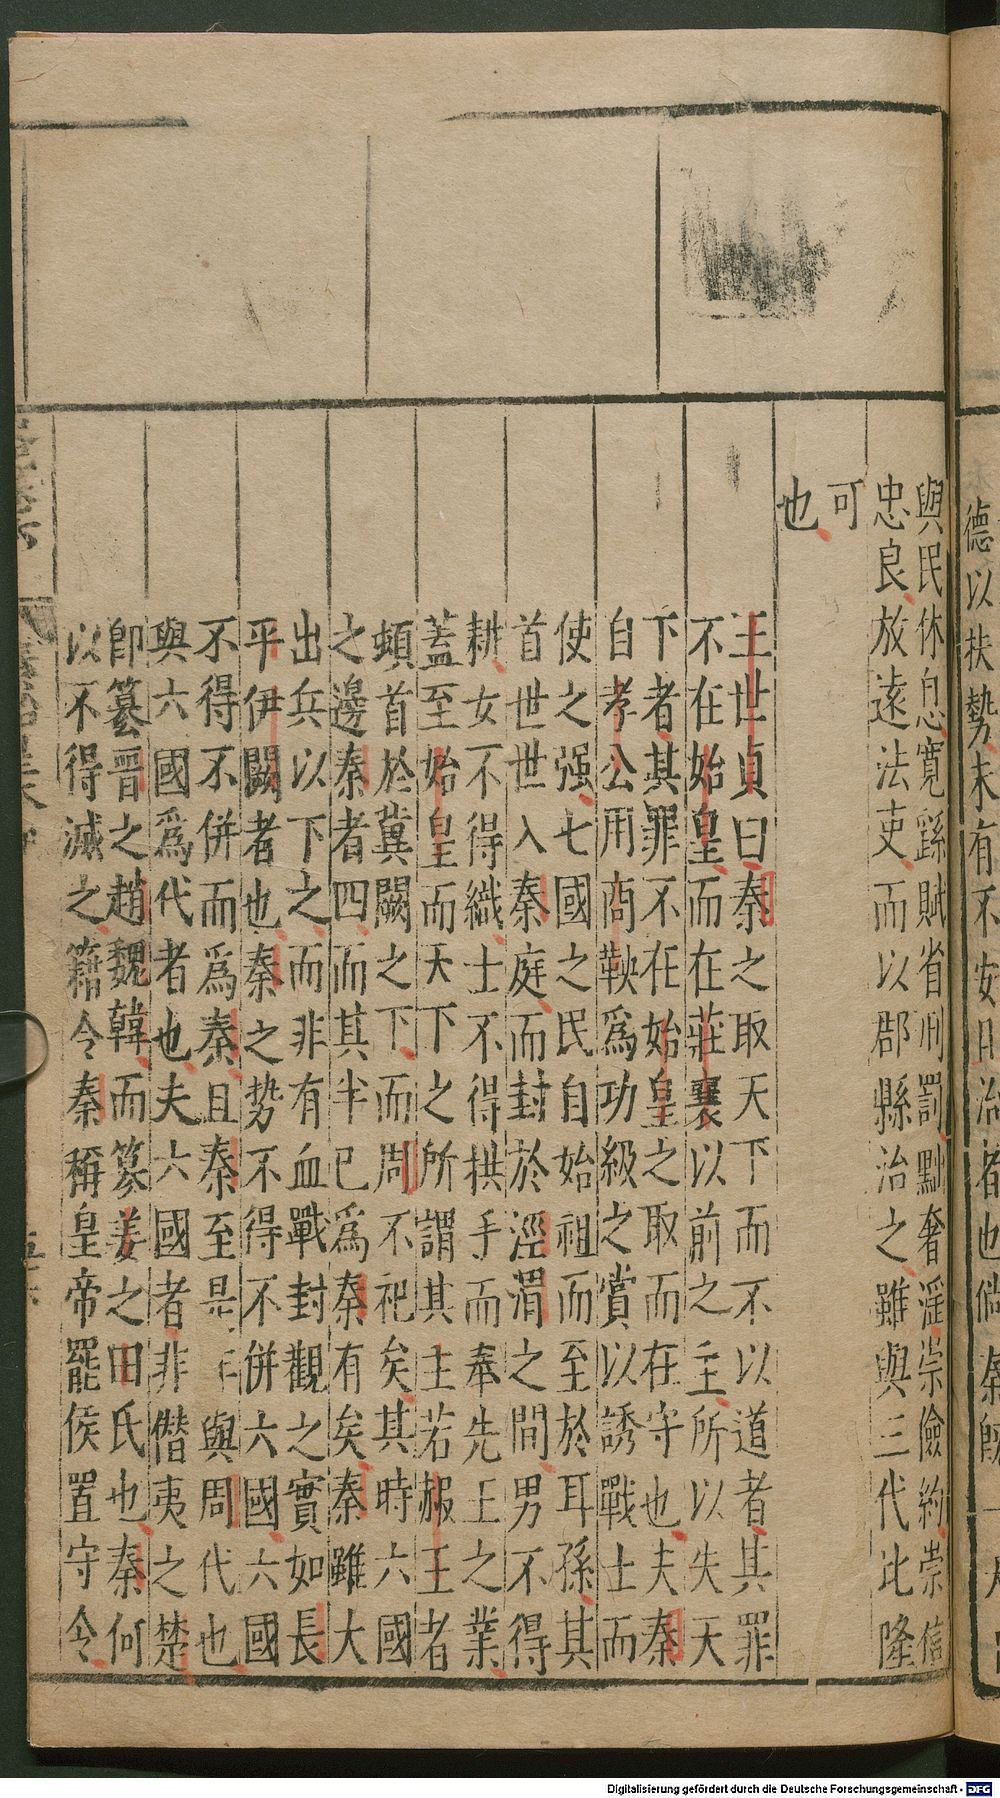 德以扶勢未有不安且治者也倘秦能一
與民休息寬繇賦省刑罰黜奢淫崇儉約崇信
忠良放遠法吏而以郡縣治之雖與三代比隆
可
也
王世貞曰秦之取天下而不以道者其罪
不在始皇而在莊襄以前之主所以失天
下者其罪不在始皇之取而在守也夫秦
自孝公用商鞅爲功級之賞以誘戰士而
使之强七國之民自始祖而至於耳孫其
首世世入秦庭而封於涇渭之間男不得
耕女不得織士不得拱手而奉先王之業
蓋至始皇而天下之所謂其主若赧王者
頓首於冀闕之下而周不祀矣其時六國
之邊秦者四而其半已爲秦有矣秦雖大
出兵以下之而非有血戰封觀之實如長
平伊闕者也秦之勢不得不併六國六國
不得不併而爲秦且秦至是 與周代也
與六國爲代者也夫六國者非僭夷之楚
卽篡晉之趙魏韓而篡姜之田氏也秦何
以不得滅之籍令秦稱皇帝罷侯置守令
Digitalisierung gefördert durch die Deutsche Forschungsgemeinschaft - DFG